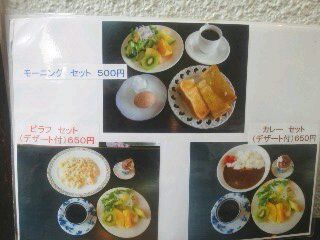 モーニング セット 500円
ピラフ セット
(デザート付)650円
カレー セット
(デザート付)650円